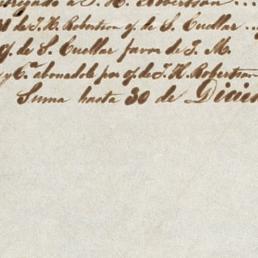 á J. H. Robertson ...
de J. H. Robertson y. de S. Cuellar ...
y. de S. Cuellar favor de J. M.
y Ca. abonable por y. de J. H. Robertson
Suma hasta 30 de